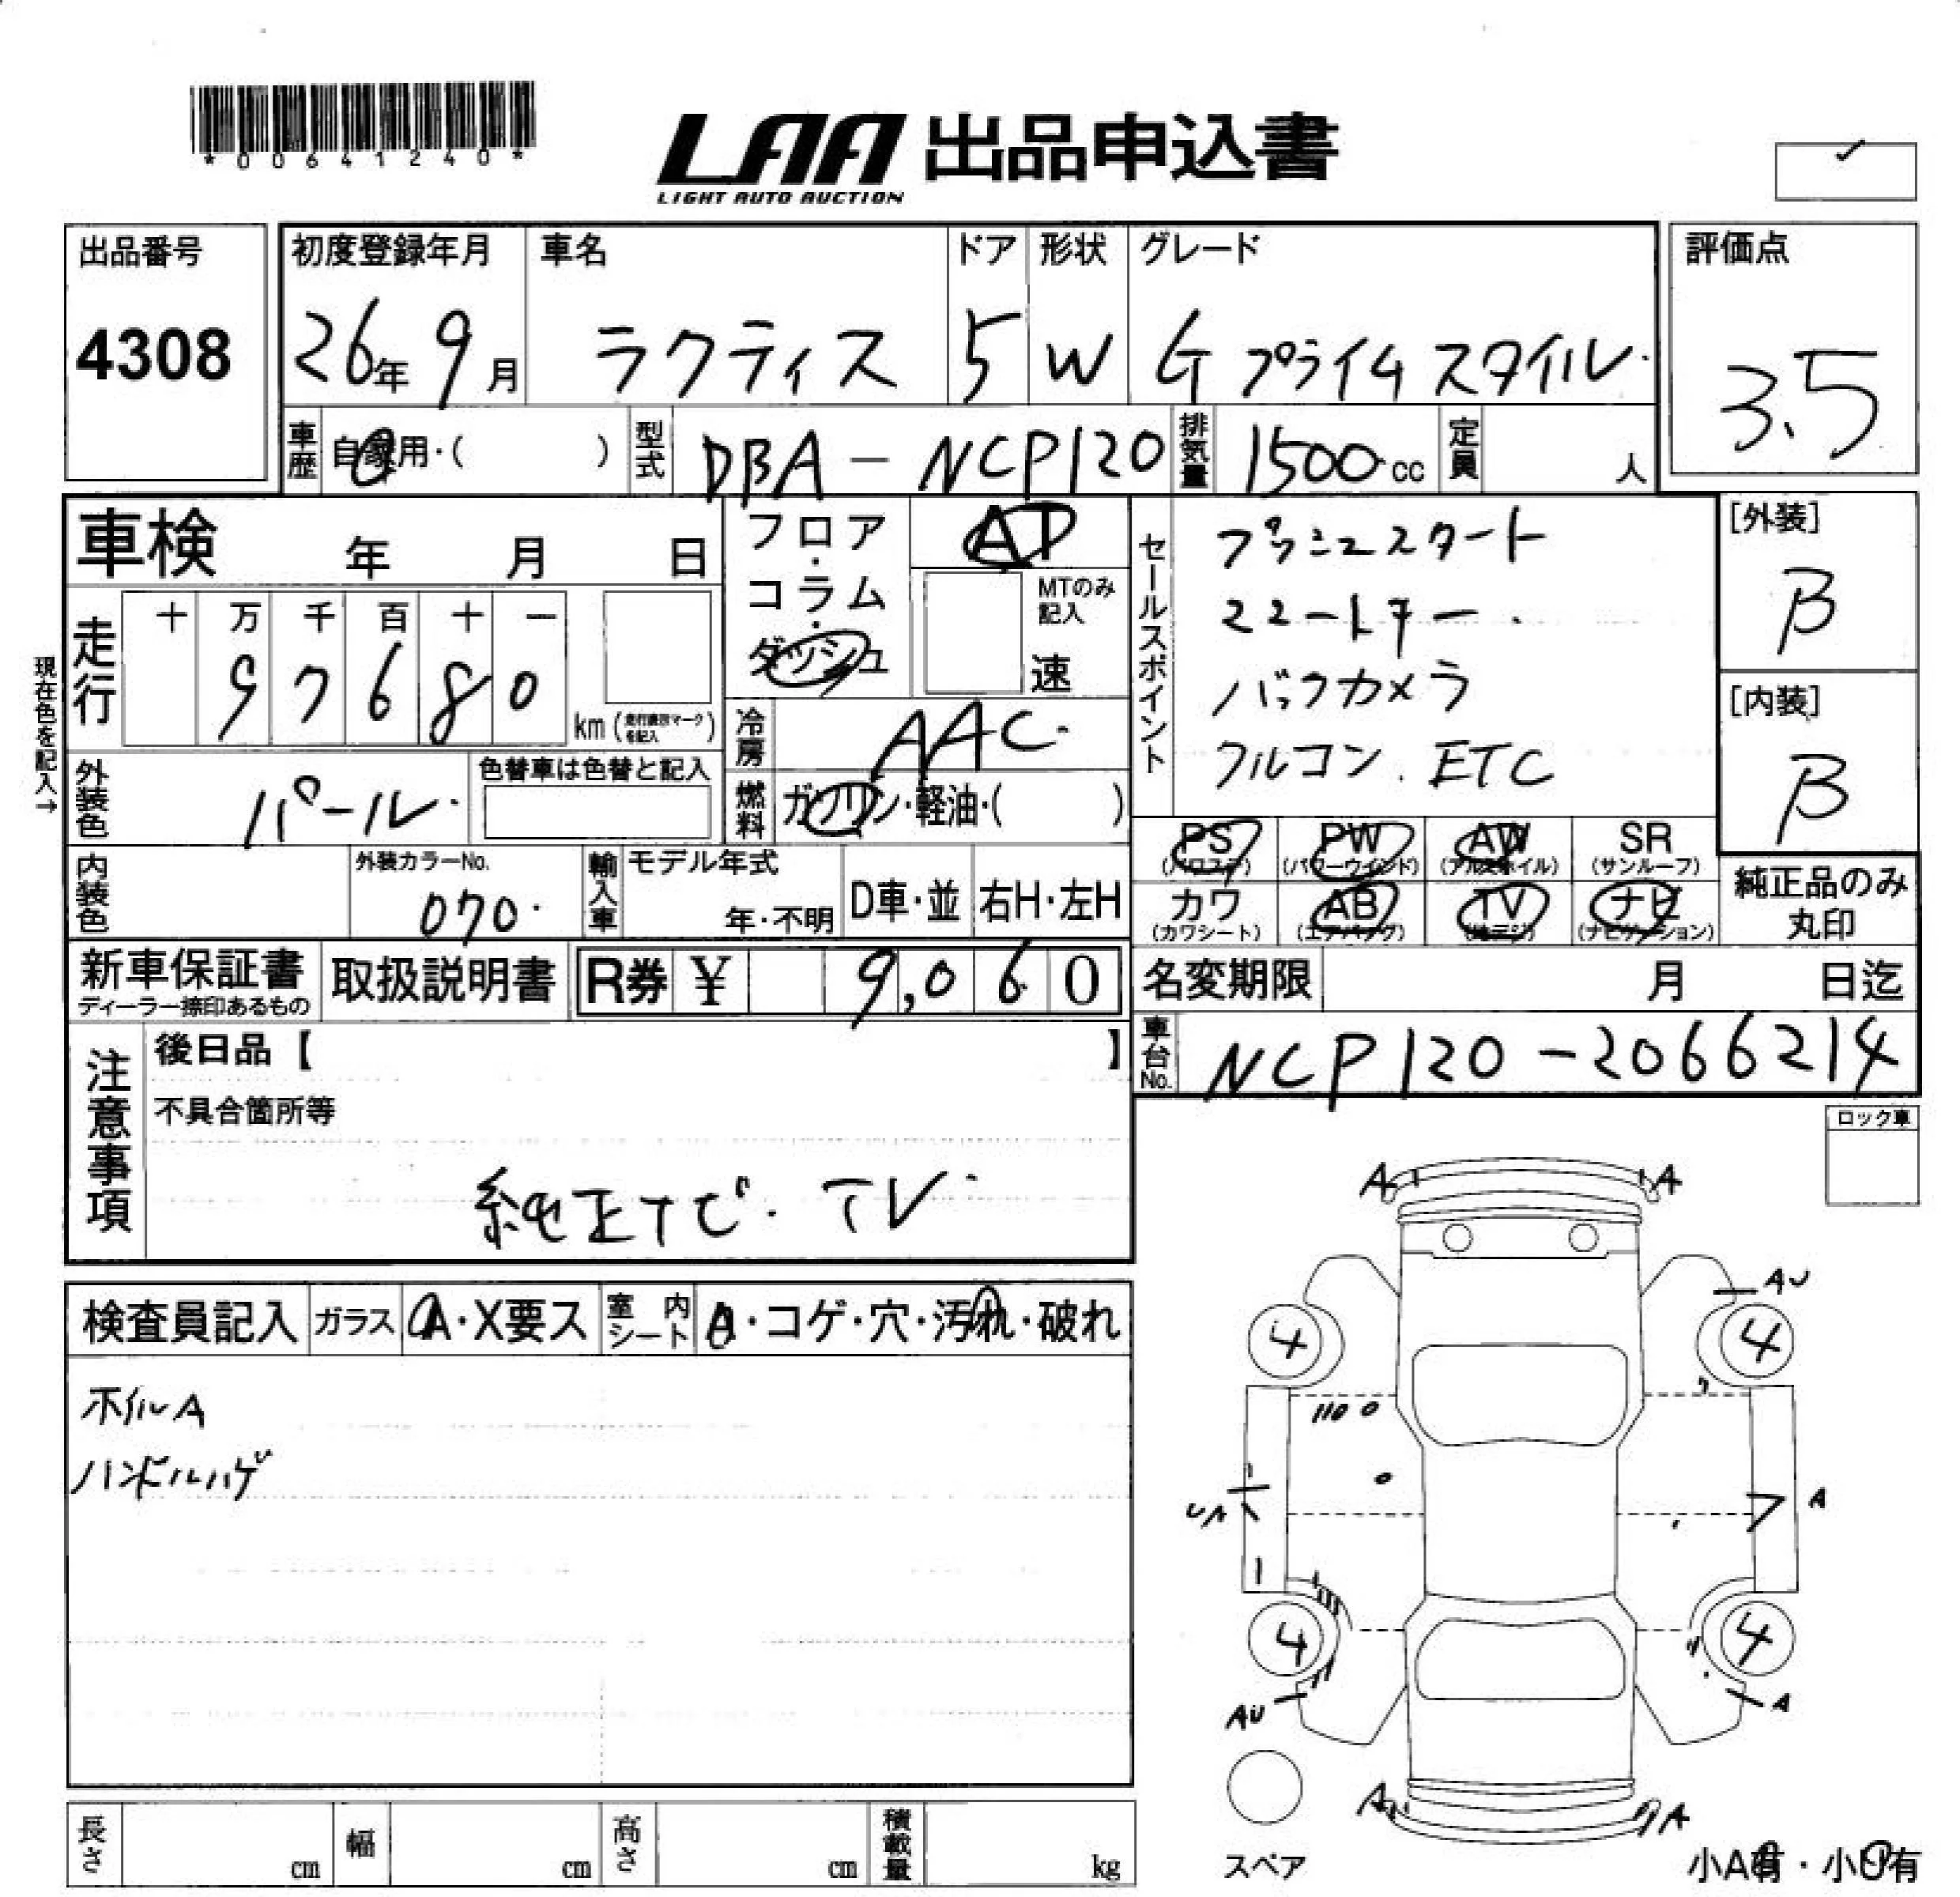 *00641240*
LAA 出品申込書
LIGHT AUTO AUCTION
出品番号
4308
初度登録年月 車名 ドア 形状 グレード
26年 9月 ラクティス 5 W G プライムスタイル
評価点
3.5
車歴 自家用・( ) 型式 DBA-NCP120 排気量 1500cc 定員 人
車検 年 月 日
フロア・コラム・ダッシュ
AT
MTのみ記入
速
現在色を記入→
走行
十 万 千 百 十 一
9 7 6 8 0
km (走行疑義マークを記入)
冷房 AAC
燃料 ガソリン・軽油・( )
外装色 パール
色替車は色替と記入
内装色
外装カラーNo.
070
輸入車 モデル年式
年・不明
D車・並 右H・左H
セールスポイント
プッシュスタート
スマートキー
バックカメラ
フルコン. ETC
[外装]
B
[内装]
B
PS (パワステ) PW (パワーウインド) AW (アルミホイル) SR (サンルーフ)
カワ (カワシート) AB (エアバッグ) TV (地デジ) ナビ (ナビゲーション)
純正品のみ丸印
新車保証書
ディーラー捺印あるもの
取扱説明書
R券 ¥ 9,060
名変期限 月 日迄
車台No. NCP120-2066214
注意事項
後日品【 】
不具合箇所等
純正ナビ. TV
ロック車
検査員記入 ガラス A・X要ス 室内シート ・コゲ・穴・汚れ・破れ
ホイルA
ハンドルハゲ
A A
AU
4 4
UA A
4 4
AU A
A A
スペア
小A有・小U有
長さ cm 幅 cm 高さ cm 積載量 kg